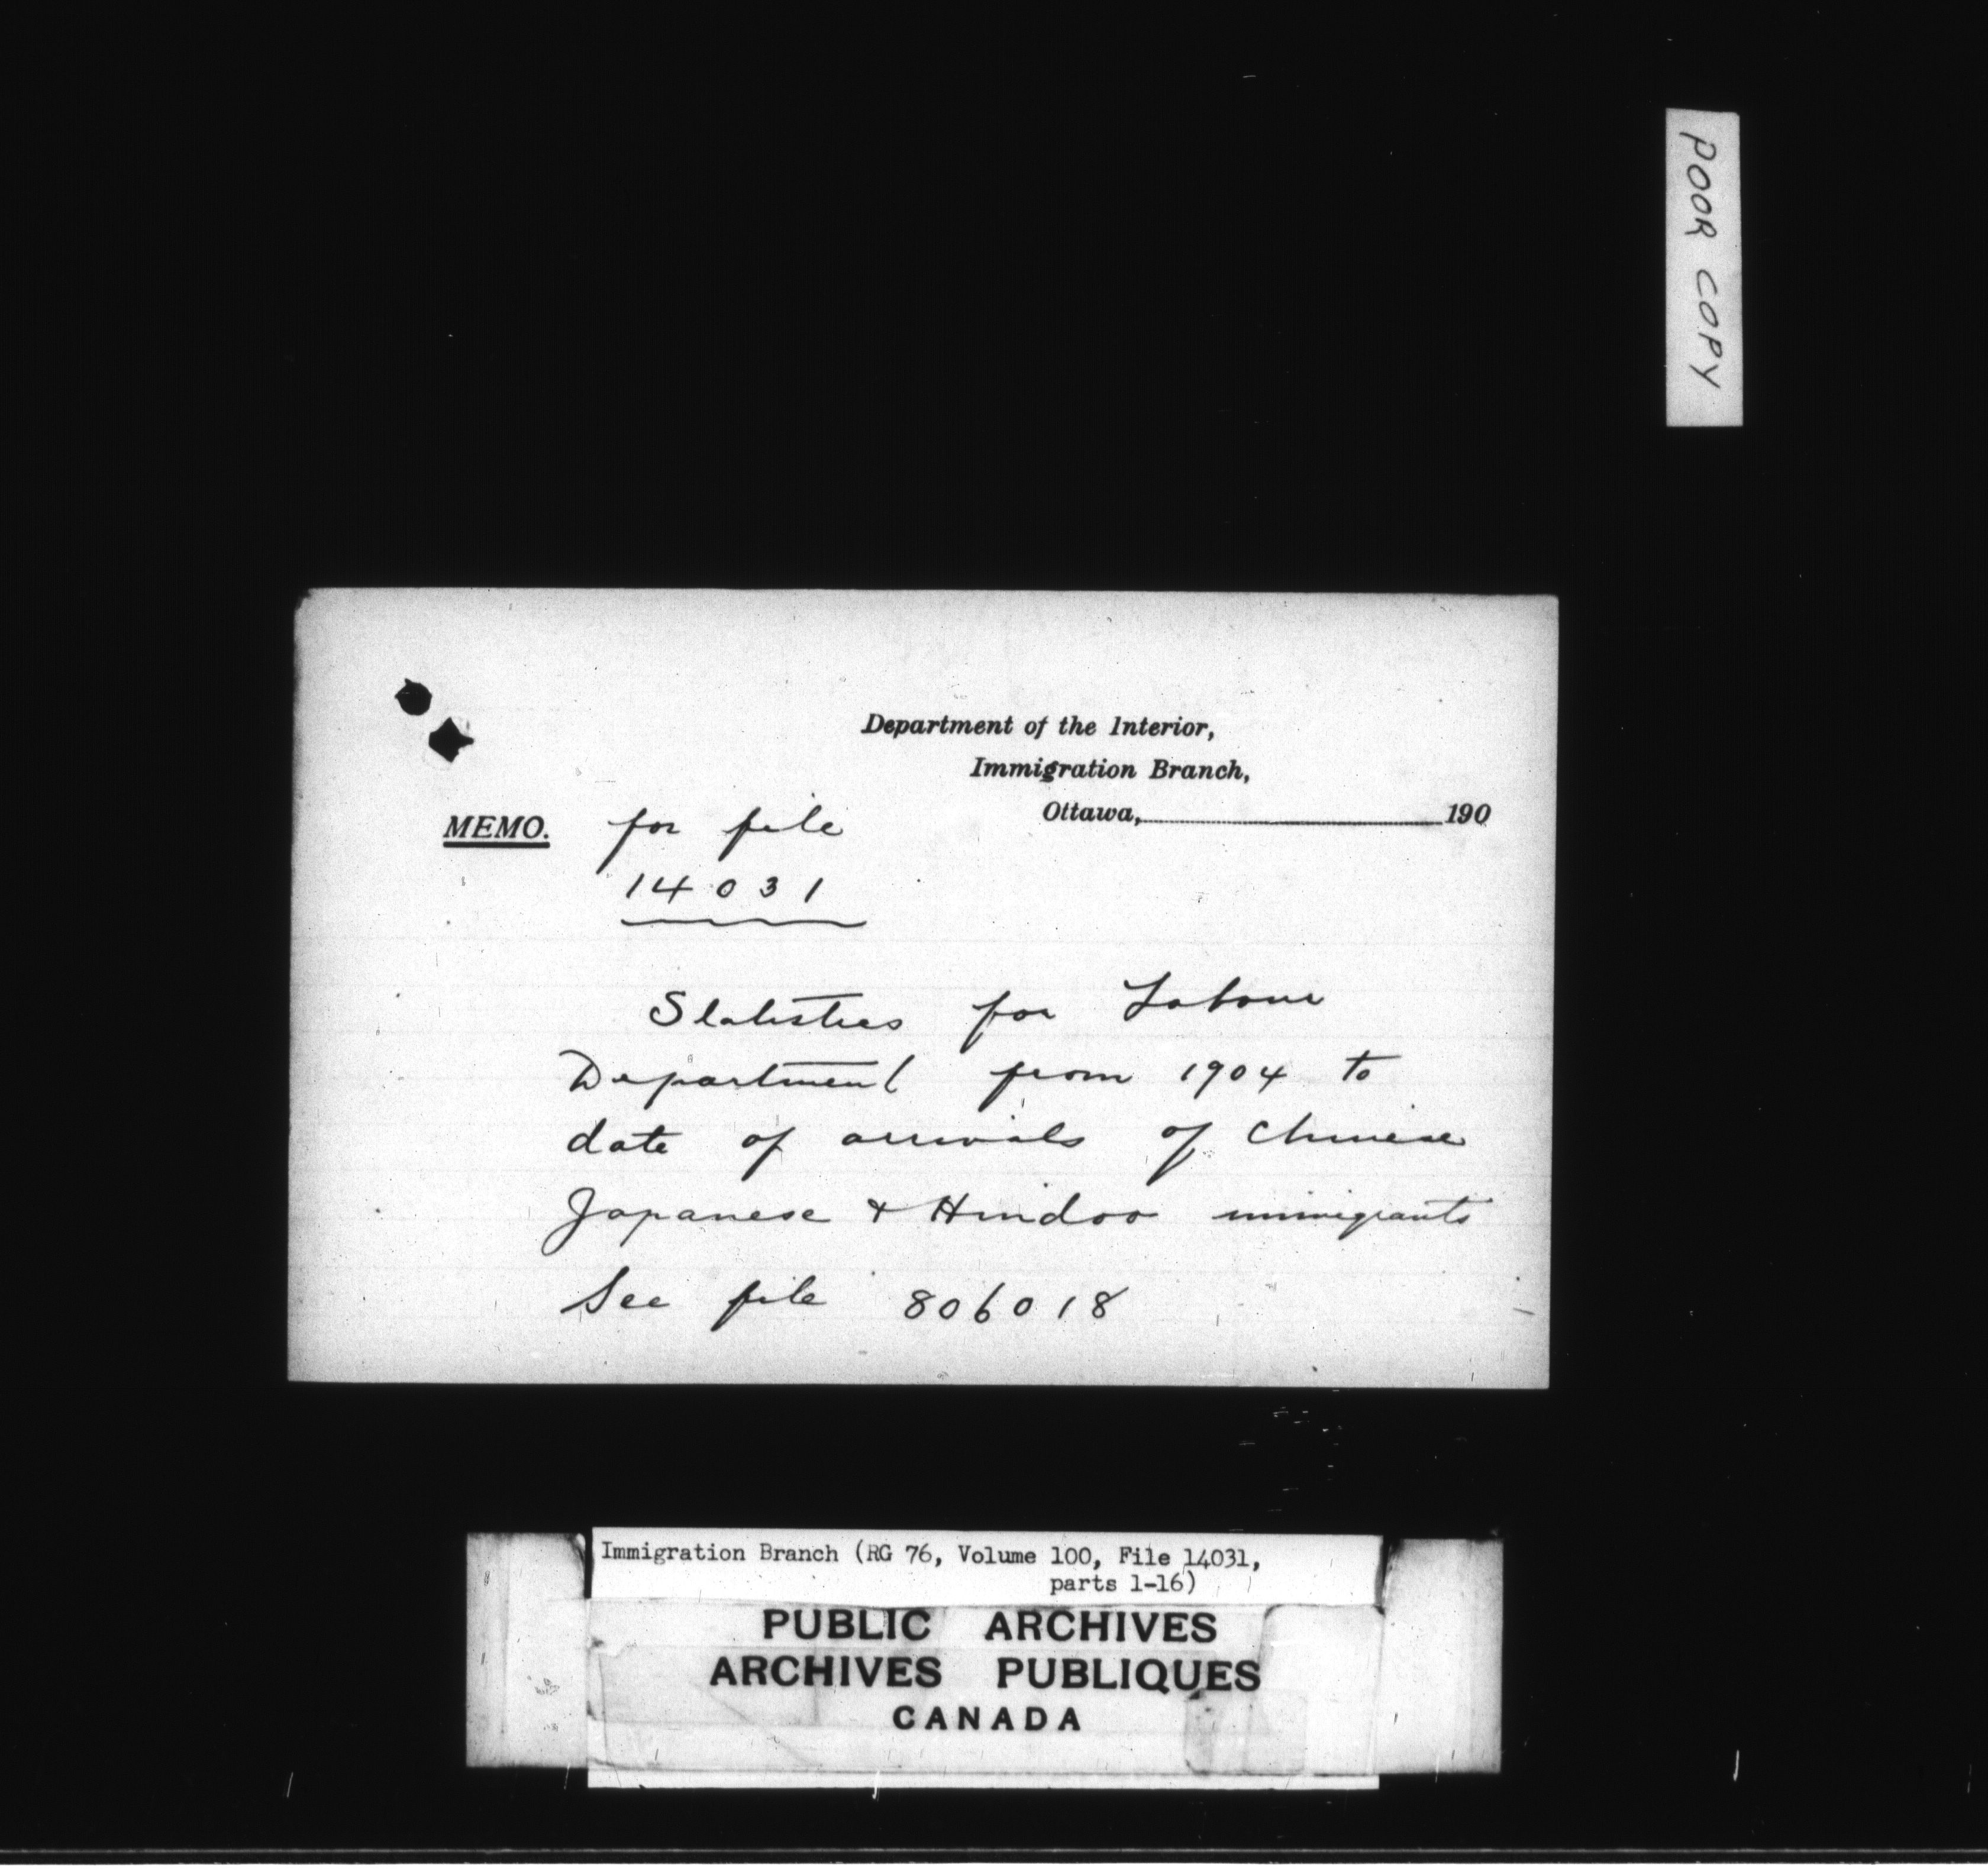 POOR COPY
Department of the Interior,
Immigration Branch,
Ottawa, 190
MEMO. for file
14031
Statistics for Labour
Department from 1904 to
date of arrivals of Chinese
Japanese & Hindoo immigrants
See file 806018
Immigration Branch (RG 76, Volume 100, File 14031,
parts 1-16)
PUBLIC ARCHIVES
ARCHIVES PUBLIQUES
CANADA